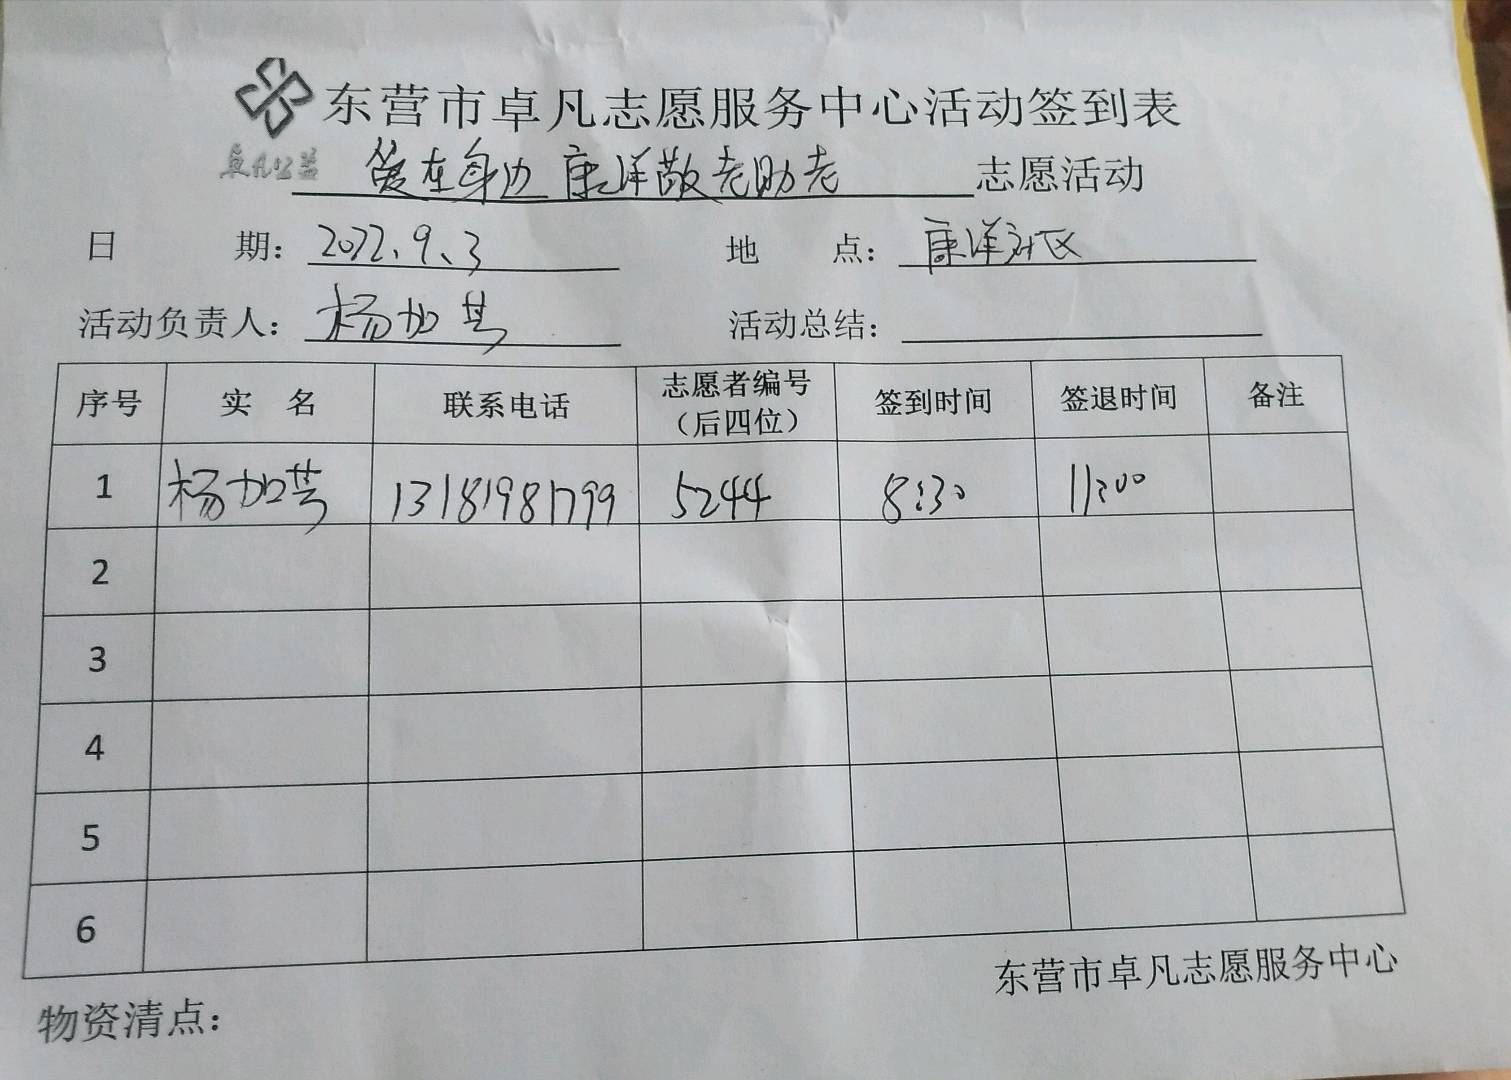 东营市卓凡志愿服务中心活动签到表
卓凡公益 爱在身边 康洋敬老助老 志愿活动
日 期：2022、9、3 地 点：康洋社区
活动负责人：杨加 活动总结：
序号 实 名 联系电话 志愿者编号（后四位） 签到时间 签退时间 备注
1 杨加 13181981799 5244 8:30 11:00
2
3
4
5
6
东营市卓凡志愿服务中心
物资清点：